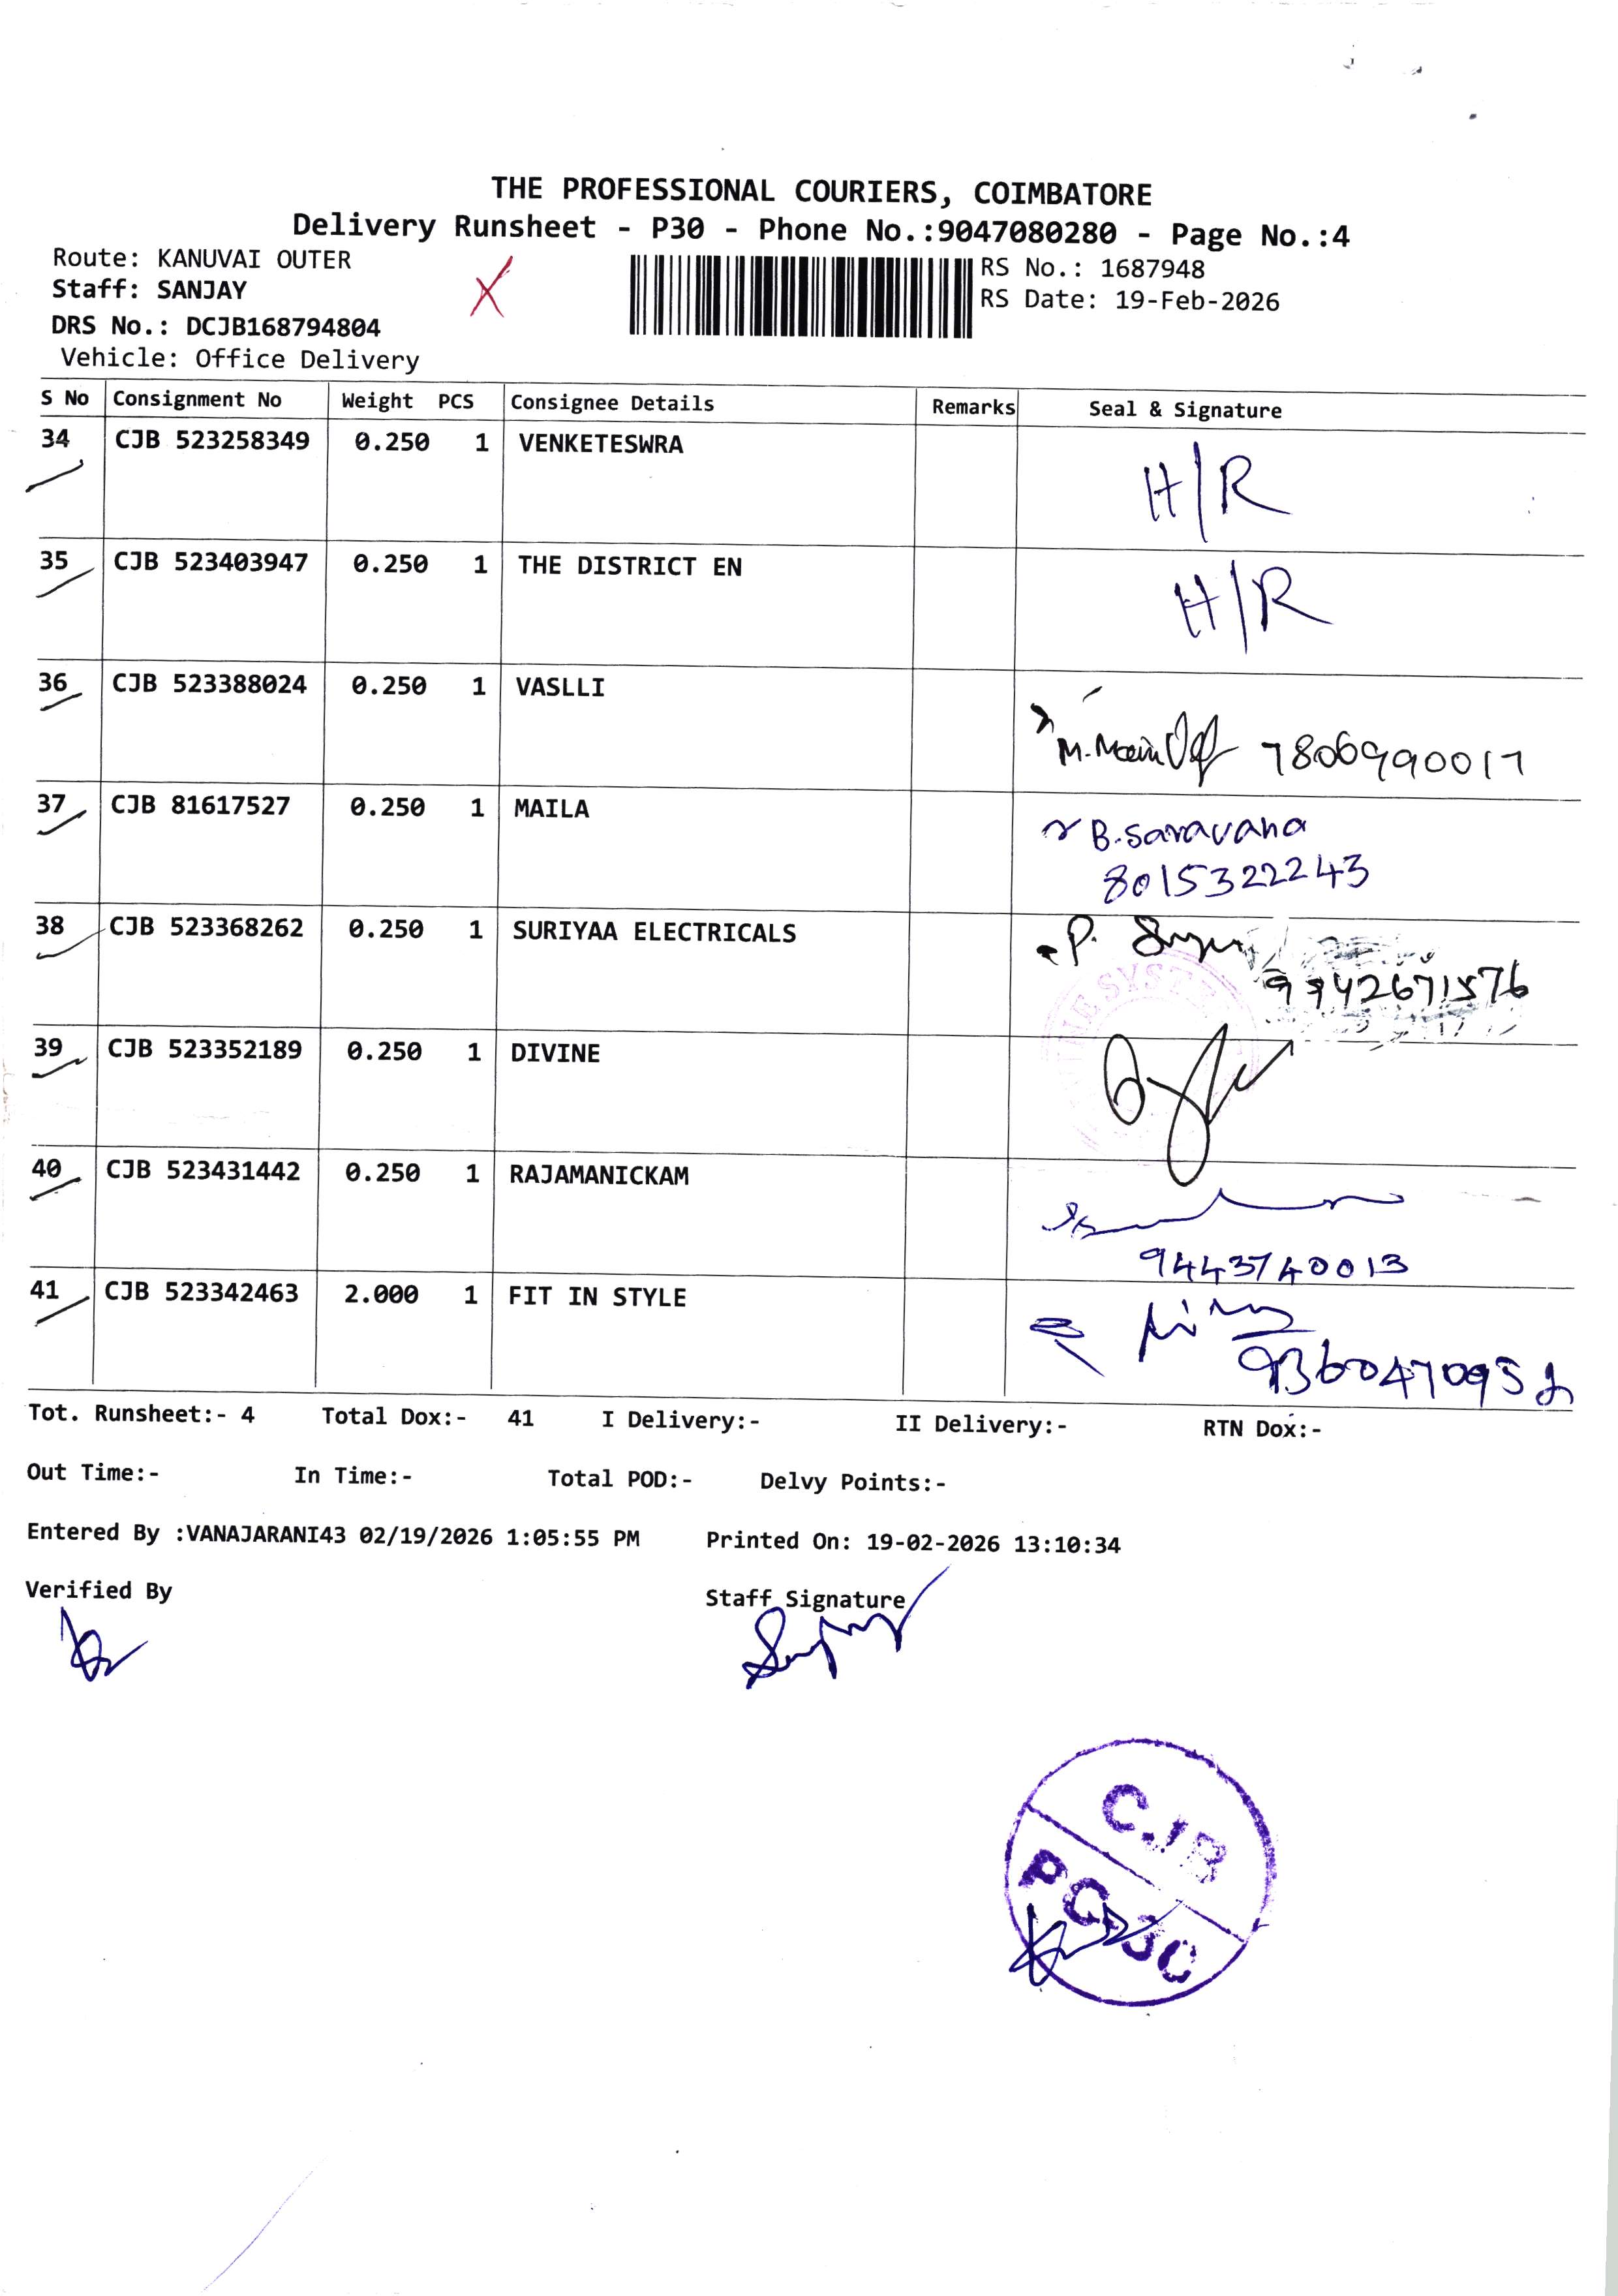 THE PROFESSIONAL COURIERS, COIMBATORE
Delivery Runsheet - P30 - Phone No.:9047080280 - Page No.:4
Route: KANUVAI OUTER
Staff: SANJAY
DRS No.: DCJB168794804
Vehicle: Office Delivery
RS No.: 1687948
RS Date: 19-Feb-2026
S No Consignment No Weight PCS Consignee Details Remarks Seal & Signature
34 CJB 523258349 0.250 1 VENKETESWRA H/R
35 CJB 523403947 0.250 1 THE DISTRICT EN H/R
36 CJB 523388024 0.250 1 VASLLI
7806990017
37 CJB 81617527 0.250 1 MAILA B.Saravana
8015322243
38 CJB 523368262 0.250 1 SURIYAA ELECTRICALS P.
9942671576
39 CJB 523352189 0.250 1 DIVINE
40 CJB 523431442 0.250 1 RAJAMANICKAM
9443740013
41 CJB 523342463 2.000 1 FIT IN STYLE
Tot. Runsheet:- 4 Total Dox:- 41 I Delivery:- II Delivery:- RTN Dox:-
Out Time:- In Time:- Total POD:- Delvy Points:-
Entered By :VANAJARANI43 02/19/2026 1:05:55 PM Printed On: 19-02-2026 13:10:34
Verified By Staff Signature
CJB